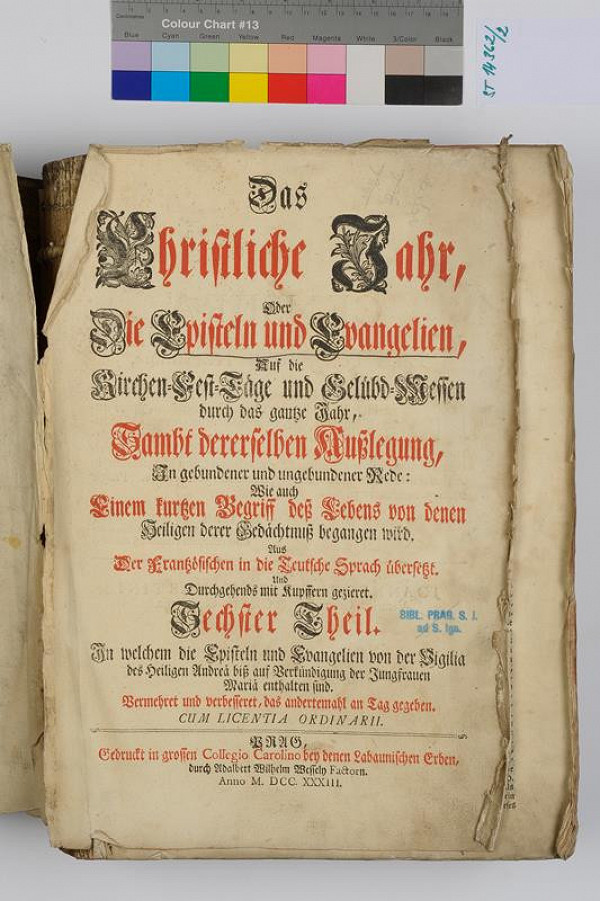 Colour Chart #13
Blue Cyan Green Yellow Red Magenta White 3/Color Black
ST 14302/2
Das
Christliche Jahr,
Oder
Die Episteln und Evangelien,
Auf die
Kirchen-Fest-Täge und Gelübd-Messen
durch das gantze Jahr,
Sambt dererselben Außlegung,
In gebundener und ungebundener Rede:
Wie auch
Einem kurtzen Begriff deß Lebens von denen
Heiligen derer Gedächtnuß begangen wird.
Aus
Der Frantzösischen in die Teutsche Sprach übersetzt.
Und
Durchgehends mit Kupffern gezieret.
Sechster Theil.
BIBL. PRAG. S. J.
ad S. Ign.
In welchem die Episteln und Evangelien von der Vigilia
des Heiligen Andreä biß auf Verkündigung der Jungfrauen
Mariä enthalten sind.
Vermehret und verbesseret, das andertemahl an Tag gegeben.
CUM LICENTIA ORDINARII.
PRAG,
Gedruckt in grossen Collegio Carolino bey denen Labaunischen Erben,
durch Adalbert Wilhelm Wessely Factorn.
Anno M. DCC. XXXIII.